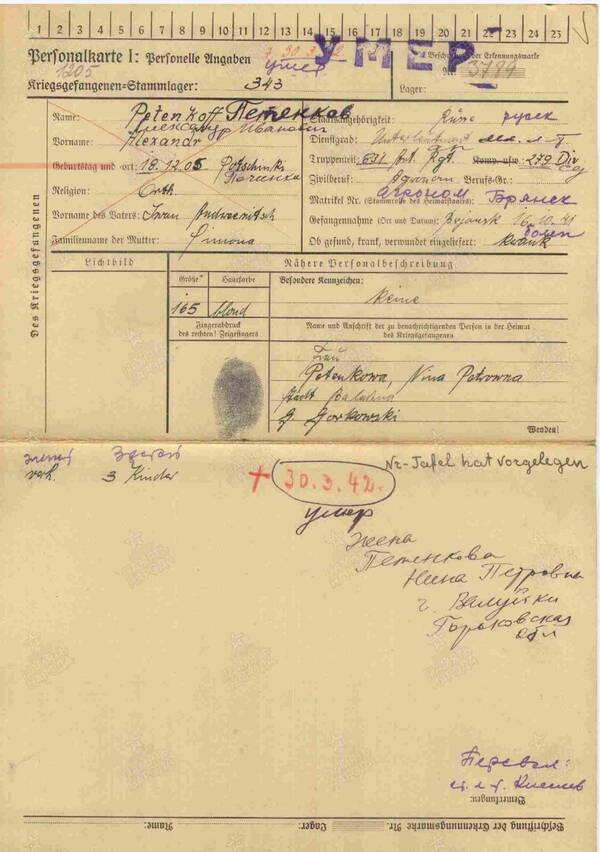 1 2 3 4 5 6 7 8 9 10 11 12 13 14 15 16 17 18 19 20 21 22 23 24 25
УМЕР
7 30.3.42
умер
Personalkarte I: Personelle Angaben
Beschriftung der Erkennungsmarke
1205
Nr.
Kriegsgefangenen-Stammlager: 343
Lager:
Des Kriegsgefangenen
Name: Petenkoff Петенков
Staatsangehörigkeit: Russe русск
Александр Иванович
Vorname: Alexandr
Dienstgrad: Unterleutnant мл. л-т
Geburtstag und -ort: 18.12.05
Truppenteil: Rgt. Komp. usw.: 279 Div
Печенка
Zivilberuf: Agronom Berufs-Gr.:
Religion: Orth.
агроном Брянск
Matrikel Nr. (Stammrolle des Heimatstaates):
Vorname des Vaters: Iwan
Gefangennahme (Ort und Datum): 16.10.41
болен
Familienname der Mutter: Simona
Ob gesund, krank, verwundet eingeliefert: krank
Lichtbild
Nähere Personalbeschreibung
Größe Haarfarbe
Besondere Kennzeichen:
165 blond
keine
Fingerabdruck
des rechten! Zeigefingers
Name und Anschrift der zu benachrichtigenden Person in der Heimat
des Kriegsgefangenen
Frau
Petenkowa, Nina Petrowna
Stadt
G. Gorkowski
Wenden!
verh. 3 Kinder
+ 30.3.42.
Nr-Tafel hat vorgelegen
умер
Жена
Петенкова
Нина Петровна
г. Валуйки
Горьковская
обл
Перевел:
Bemerkungen:
Beschriftung der Erkennungsmarke Nr. Lager: Name: